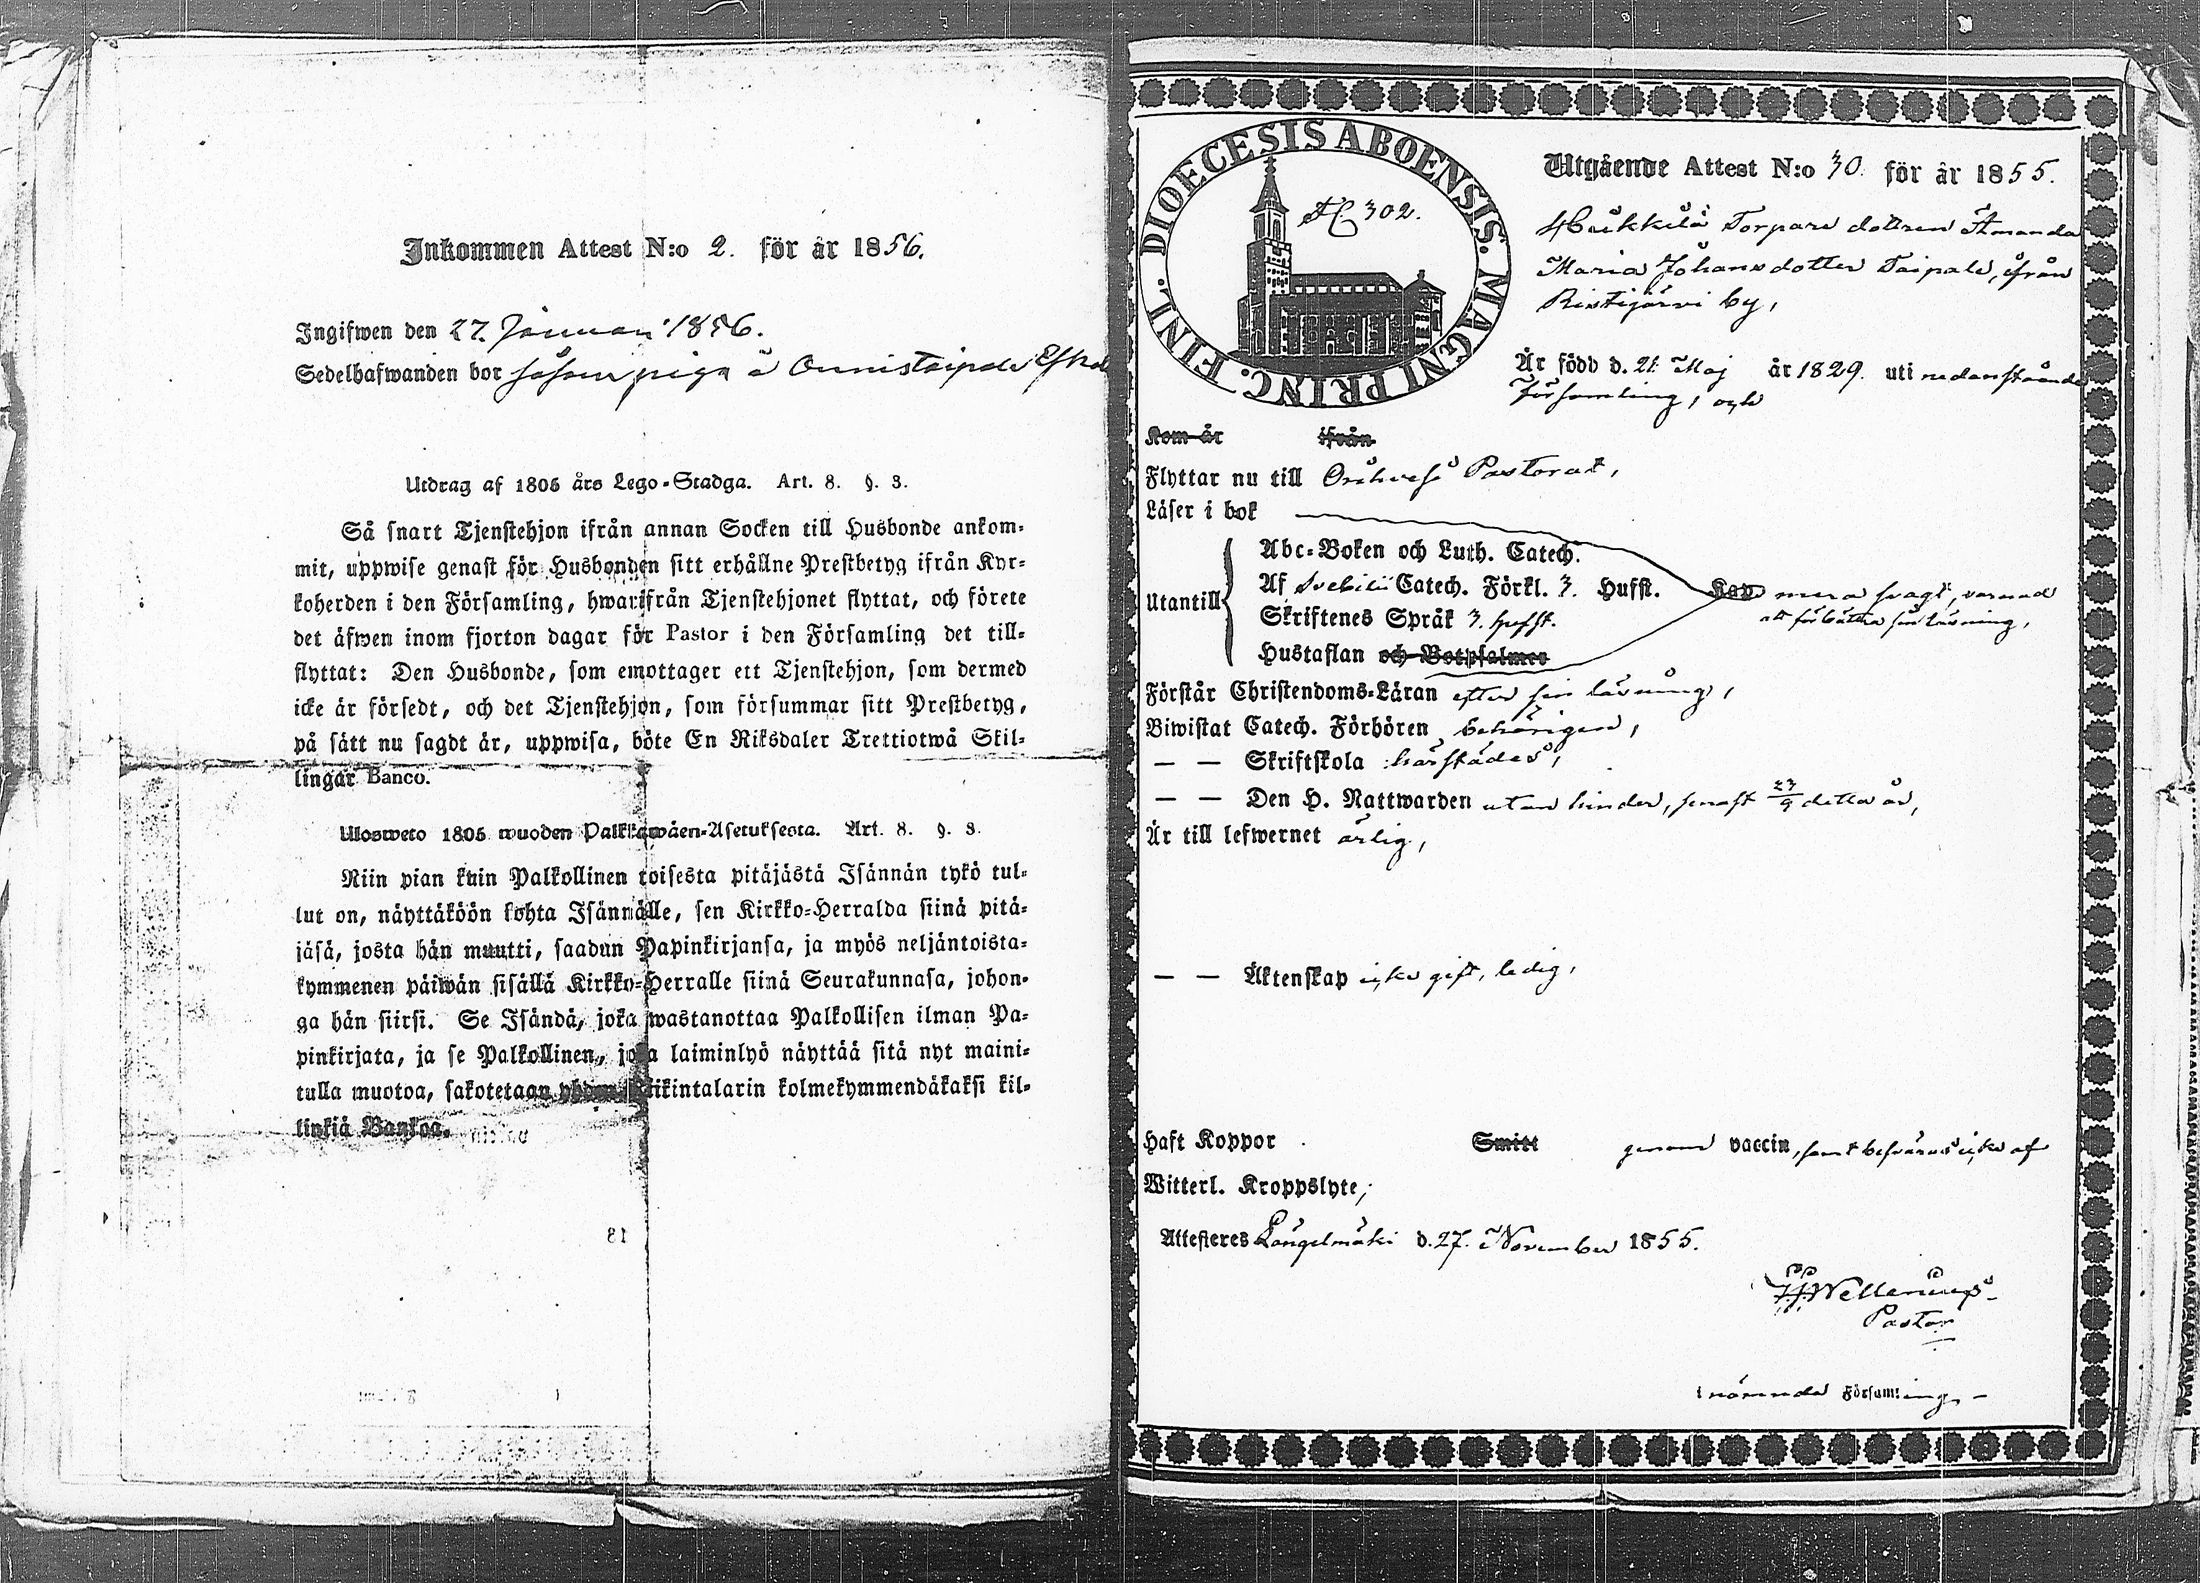 Inkommen Attest N:o 2. för år 1856.
Ingifwen den 27. Januari 1856.
Sedelhafwanden bor såsom piga å Onnistaipale
Utdrag af 1805 års Lego-Stadga. Art. 8. §. 3.
Så snart Tjenstehjon ifrån annan Socken till Husbonde ankom-
mit, uppwise genast för Husbonden sitt erhållne Prestbetyg ifrån Kyr-
koherden i den Församling, hwarifrån Tjenstehjonet flyttat, och förete
det äfwen inom fjorton dagar för Pastor i den Församling det till-
flyttat: Den Husbonde, som emottager ett Tjenstehjon, som dermed
icke är försedt, och det Tjenstehjon, som försummar sitt Prestbetyg,
på sätt nu sagdt är, uppwisa, böte En Riksdaler Trettiotwå Skil-
lingar Banco.
Ulosweto 1805 wuoden Palkkawäen-Asetuksesta. Art. 8. §. 3.
Niin pian kuin Palkollinen toisesta pitäjästä Isännän tykö tul-
lut on, näyttäköön kohta Isännälle, sen Kirkko-Herralda siinä pitä-
jäsä, josta hän muutti, saadun Papinkirjansa, ja myös neljäntoista-
kymmenen päiwän sisällä Kirkko-Herralle siinä Seurakunnasa, johon-
ga hän siirsi. Se Isändä, joka wastanottaa Palkollisen ilman Pa-
pinkirjata, ja se Palkollinen, joka laiminlyö näyttää sitä nyt maini-
tulla muotoa, sakotetaan yhden Riikintalarin kolmekymmendäkaksi kil-
linkiä Bankoa.
13
DIOECESIS ABOENSIS. MAGNI PRINC. FINL.
302.
Utgående Attest N:o 30. för år 1855.
Heikkilä Torpare dottren Amanda
Maria Johansdotter Taipale, ifrån
Ristijärvi by,
Är född d. 21. Maj år 1829. uti nedanstående
Församling, och
Kom år ifrån
Flyttar nu till Orihvesi Pastorat,
Läser i bok
Utantill
Abc-Boken och Luth. Catech.
Af Svebilii Catech. Förkl. 3. Hufst. Kap mera svagt, varnad
att förbättra sin läsning,
Skriftenes Språk 3. hufst.
Hustaflan och Botpsalmer
Förstår Christendoms-Läran efter sin läsning,
Biwistat Catech. Förhören behörigen,
— — Skriftskola härstädes,
— — Den H. Nattwarden utan hinder, senast 23/9 detta år,
Är till lefwernet ärlig,
— — Äktenskap icke gift, ledig,
Haft Koppor Smitt genom vaccin, samt besväras icke af
Witterl. Kroppslyte;
Attesteras Längelmäki d. 27. November 1855.
Pastor
i nämnda Församling.